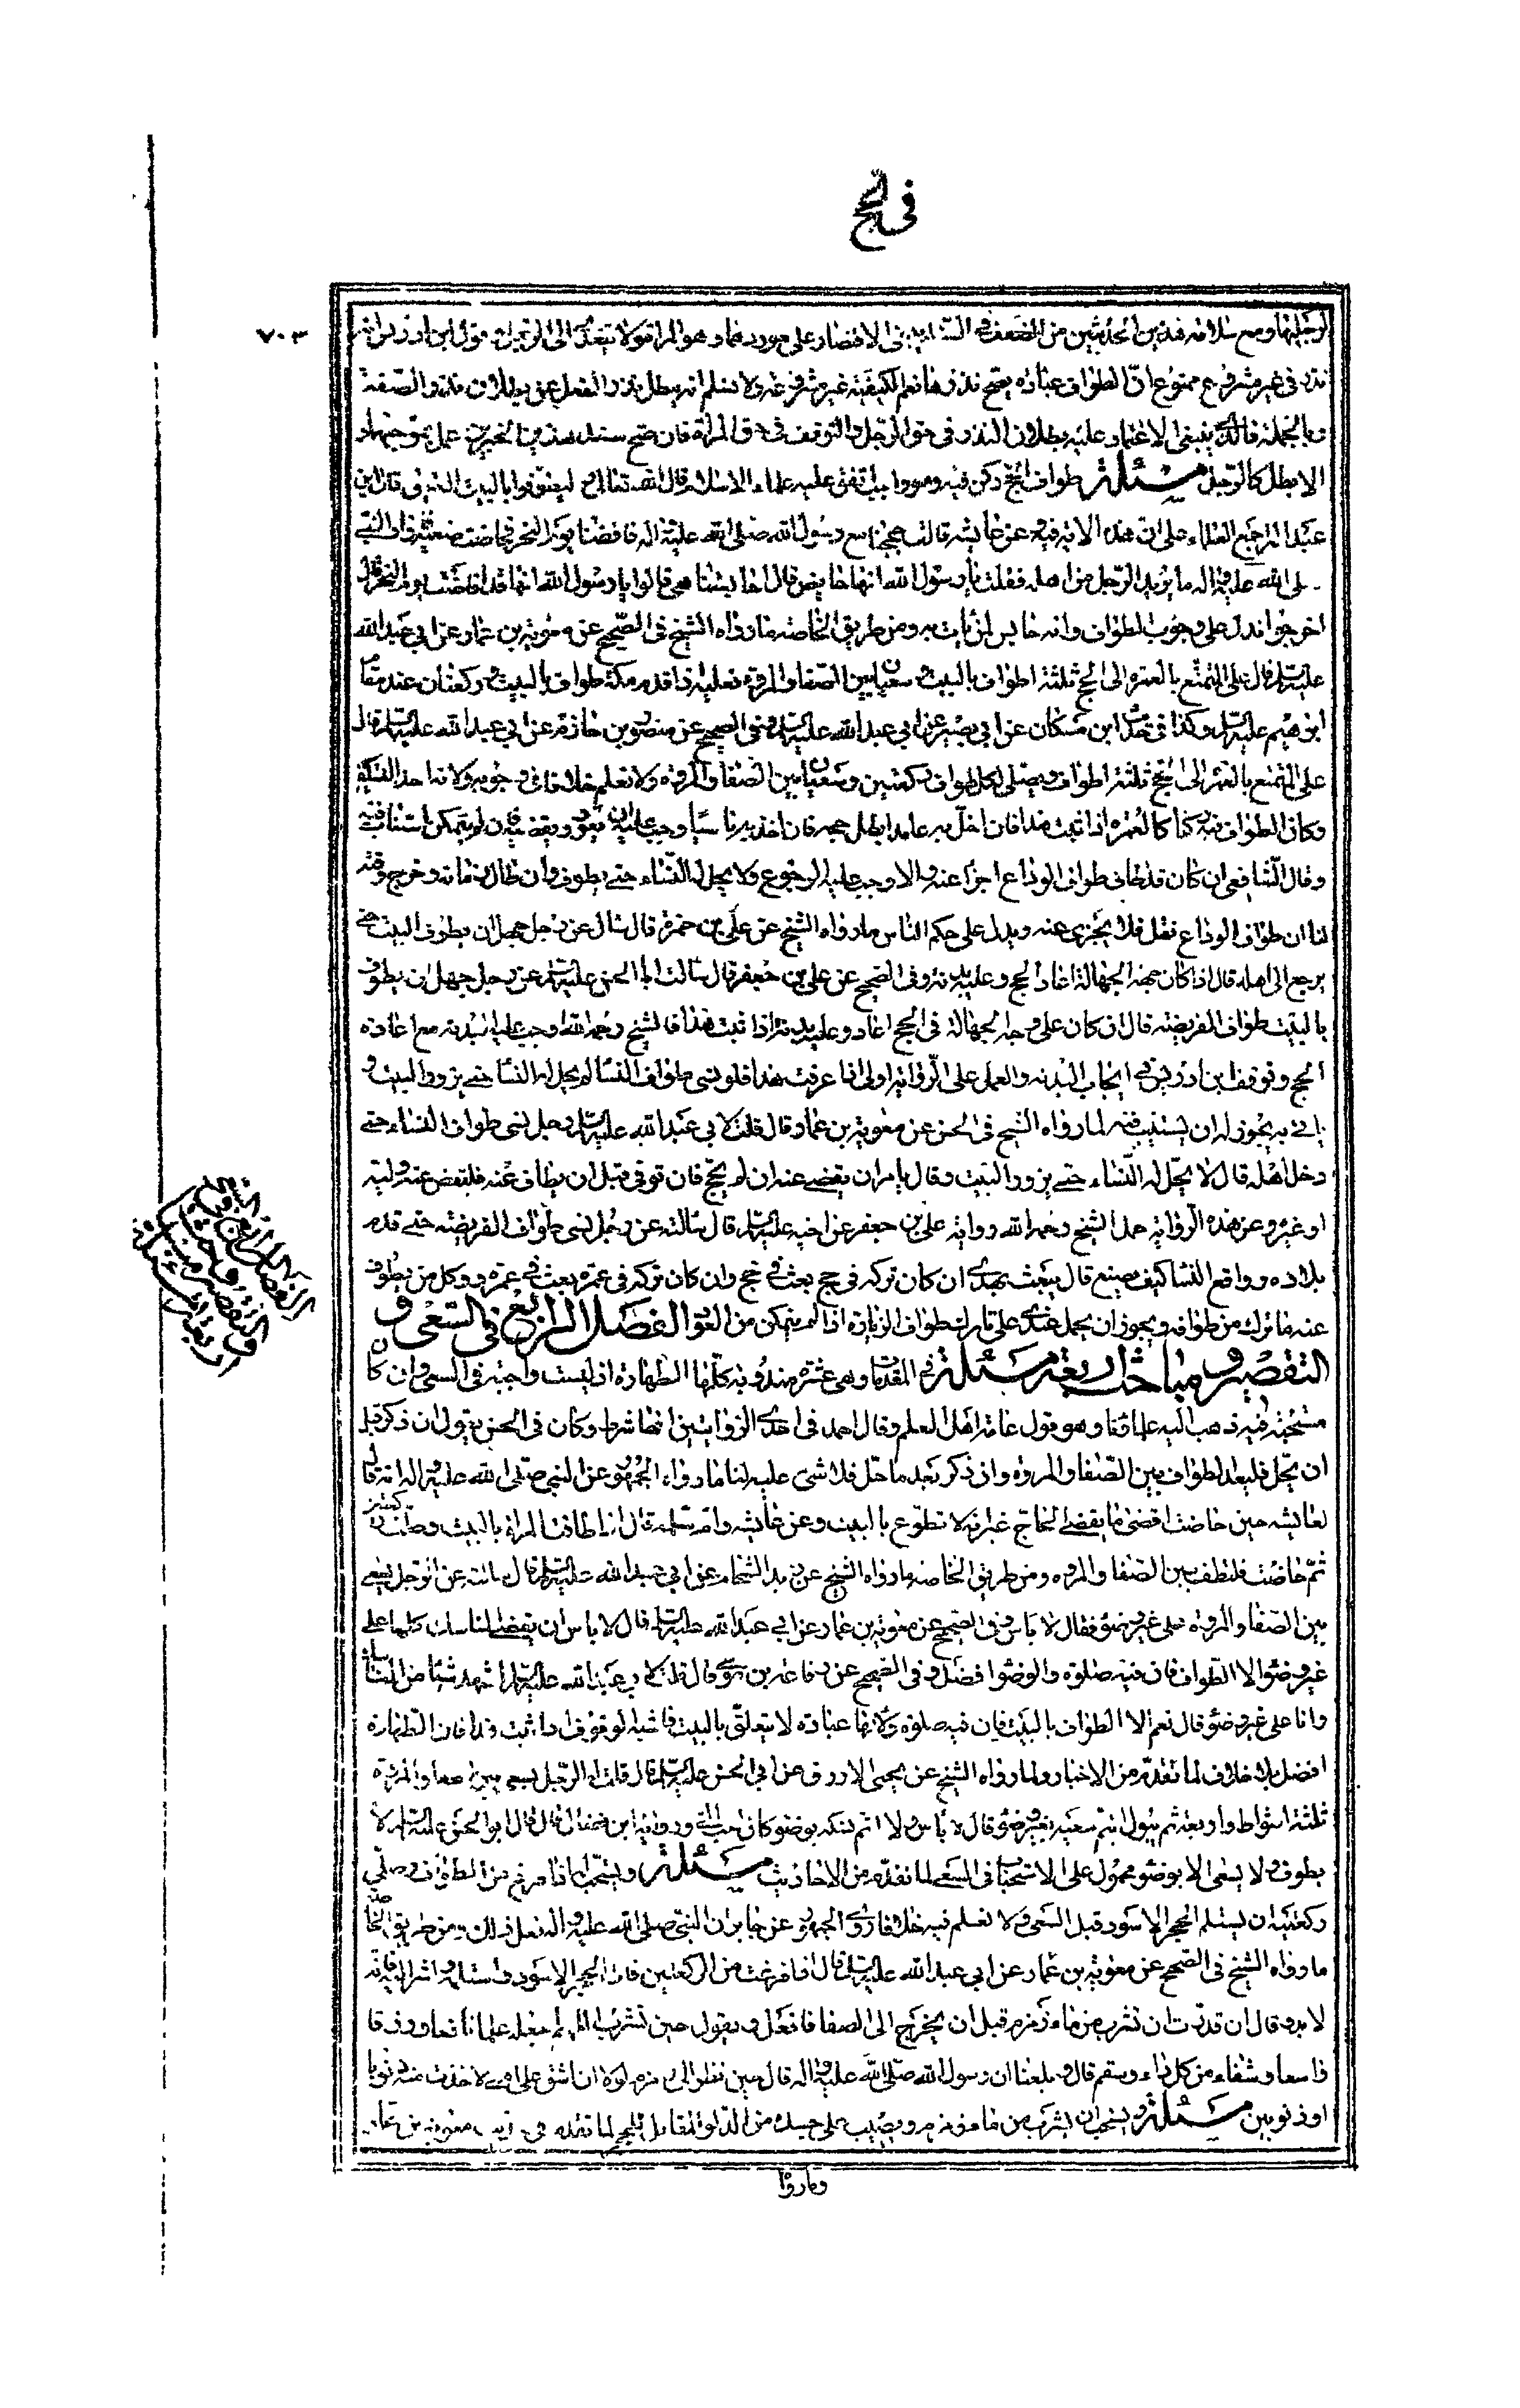 في الحج
٧٠٣
لرجليها ومع سلامة هذين الحديثين من الضعف في السند ينبغي الاقتصار على مورده فما وهو المراة ولا يتعدى الى الرجل وقول ابن ادريس انه
نذر في غير مشروع ممنوع اذ الطواف عبادة يصح نذرها نعم الكيفية غير مشروعة ولا نسلم انه يبطل نذر الفعل عند بطلان نذر الصفة
وبالجملة فالذي ينبغي الاعتماد عليه بطلان النذر في حق الرجل والتوقف في حق المراة فان صح سند هذين الخبرين عمل بموجبهما و
الا بطل كالرجل مسئلة طواف الحج ركن فيه وهو واجب اتفق عليه علماء الاسلام قال الله تعالى وليطوفوا بالبيت العتيق قال ابن
عبد البر اجمع العلماء على ان هذه الاية فيه عن عايشه قالت حججنا مع رسول الله صلى الله عليه واله فافضنا يوم النحر فحاضت صفية فاراد النبي
صلى الله عليه واله ما يريد الرجل من اهله فقلت يا رسول الله انها حايض قال احابستنا هي قالوا يا رسول الله انها قد افاضت يوم النحر قال
اخرجوا فدل على وجوب الطواف وانه حابس لمن لم يات به ومن طريق الخاصة ما رواه الشيخ في الصحيح عن معوية بن عمار عن ابي عبد الله
عليه السلم قال على المتمتع بالعمرة الى الحج ثلثة اطواف بالبيت وسعيان بين الصفا والمروة فعليه اذا قدم مكة طواف بالبيت وركعتان عند مقام
ابرهيم عليه السلم وكذا في حديث ابن مسكان عن ابي بصير عن ابي عبد الله عليه السلم وفي الصحيح عن منصور بن حازم عن ابي عبد الله عليه السلم قال
على المتمتع بالعمرة الى الحج ثلثة اطواف ويصلي لكل طواف ركعتين وسعيان بين الصفا والمروة ولا نعلم خلافا في وجوبه ولانه احد النسكين
وكان الطواف فيه ركنا كالعمرة اذا ثبت هذا فان اخل به عامدا بطل حجه فان اخل به ناسيا وجب عليه ان يعود ويقضيه فان لم يتمكن استناب فيه
وقال الشافعي ان كان قد طاف طواف الوداع اجزأ عنه والا وجب عليه الرجوع ولا يحل له النساء حتى يطوف وان طال زمانه وخرج وقته
لنا ان طواف الوداع نفل فلا يجزى عنه ويدل على حكم الناس ما رواه الشيخ عن علي بن حمزة قال سال عن رجل جهل ان يطوف بالبيت حتى
يرجع الى اهله قال اذا كان جهة الجهالة اعاد الحج وعليه بدنة وفي الصحيح عن علي بن جعفر قال سالت ابا الحسن عليه السلم عن رجل جهل ان يطوف
بالبيت طواف الفريضة قال ان كان على وجه الجهالة في الحج اعاد وعليه بدنة اذا ثبت هذا فالشيخ رحمه الله اوجب عليه البدنة مع اعادة
الحج وتوقف ابن ادريس في ايجاب البدنة والعمل على الرواية اولى اذا عرفت هذا فلو نسي طواف النسا لم يحل له النسا حتى يزور البيت و
ياتي به يجوز له ان يستنيب فيه لما رواه الشيخ في الحسن عن معوية بن عمار قال قلت لابي عبد الله عليه السلم رجل نسي طواف النساء حتى
دخل اهله قال لا يحل له النساء حتى يزور البيت وقال يامر ان يقضى عنه ان لم يحج فان توفي قبل ان يطاف عنه فليقض عنه وليه
او غيره وعن هذه الرواية حمل الشيخ رحمه الله رواية علي بن جعفر عن اخيه عليه السلم قال سالته عن رجل نسي طواف الفريضة حتى قدم
بلاده وواقع النسا كيف يصنع قال يبعث بهدي ان كان تركه في حج بعث في حج وان كان تركه في عمرة بعث في عمرة ووكل من يطوف
عنه ما تركه من طوافه ويجوز ان يحمل عندي على تارك طواف الزيارة اذا لم يتمكن من العود الفصل الرابع في السعي و
التقصير ومباحثه اربعة مسئلة في المقدمات وهي عشرة مندوبة كلها الطهارة اذ ليست واجبة في السعي وان كان
مستحبة فيه ذهب اليه علماؤنا وهو قول عامة اهل العلم وقال احمد في احدى الروايتين انها شرط وكان في الحسن يقول ان ذكر قبل
ان يحل فليعد الطواف بين الصفا والمروة وان ذكر بعد ما حل فلا شئ عليه لنا ما رواه الجمهور عن النبي صلى الله عليه واله انه قال
لعايشه حين حاضت اقضى ما يقضى الحاج غير انه لا تطوع بالبيت وعن عايشه وام سلمة قال اذا طافت المراة بالبيت وصلت ركعتين
ثم حاضت فلتطف بين الصفا والمروة ومن طريق الخاصة ما رواه الشيخ عن زيد الشحام عن ابي عبد الله عليه السلم قال سالته عن الرجل يسعى
بين الصفا والمروة على غير وضوء فقال لا باس وفي الصحيح عن معوية بن عمار عن ابي عبد الله عليه السلم قال لا باس ان يقضى المناسك كلها على
غير وضوء الا الطواف فان فيه صلوة والوضوء افضل وفي الصحيح عن رفاعة بن موسى قال قلت لابي عبد الله عليه السلم اشهد شيئا من المناسك
وانا على غير وضوء قال نعم الا الطواف بالبيت فان فيه صلوة ولانها عبادة لا يتعلق بالبيت فاشبه الوقوف اذا ثبت هذا فان الطهارة
افضل بلا خلاف لما تقدم من الاخبار ولما رواه الشيخ عن يحيى الازرق عن ابي الحسن عليه السلم قال قلت له الرجل يسعى بين الصفا والمروة
ثلثة اشواط او اربعة ثم يبول ايتم سعيه بغير وضوء قال لا باس ولو اتم نسكه بوضوء كان احب الي ورواية ابن فضال قال قال ابو الحسن عليه السلم لا
يطوف ولا يسعى الا بوضوء محمول على الاستحباب في السعي لما تقدم من الاحاديث مسئلة ويستحب له اذا فرغ من الطواف وصلى
ركعتيه ان يستلم الحجر الاسود قبل السعي ولا نعلم فيه خلافا روى الجمهور عن جابر ان النبي صلى الله عليه واله فعل ذلك ومن طريق الخاصة
ما رواه الشيخ في الصحيح عن معوية بن عمار عن ابي عبد الله عليه السلم قال اذا فرغت من الركعتين فات الحجر الاسود فاستلمه واشر اليه فانه
لا بد وقال ان قدرت ان تشرب من ماء زمزم قبل ان يخرج الى الصفا فافعل ويقول حين تشرب اللهم اجعله علما نافعا ورزقا
واسعا وشفاء من كل داء وسقم قال وبلغنا ان رسول الله صلى الله عليه واله قال حين نظر الى زمزم لولا ان اشق على امتي لاخذت منه ذنوبا
او ذنوبين مسئلة ويستحب ان يشرب من ماء زمزم ويصب على جسده من الدلو المقابل للحجر لما تقدم في حديث معوية بن عمار
وما رواه
الفصل الرابع في السعي
والتقصير ومباحثه
اربعة مسئلة